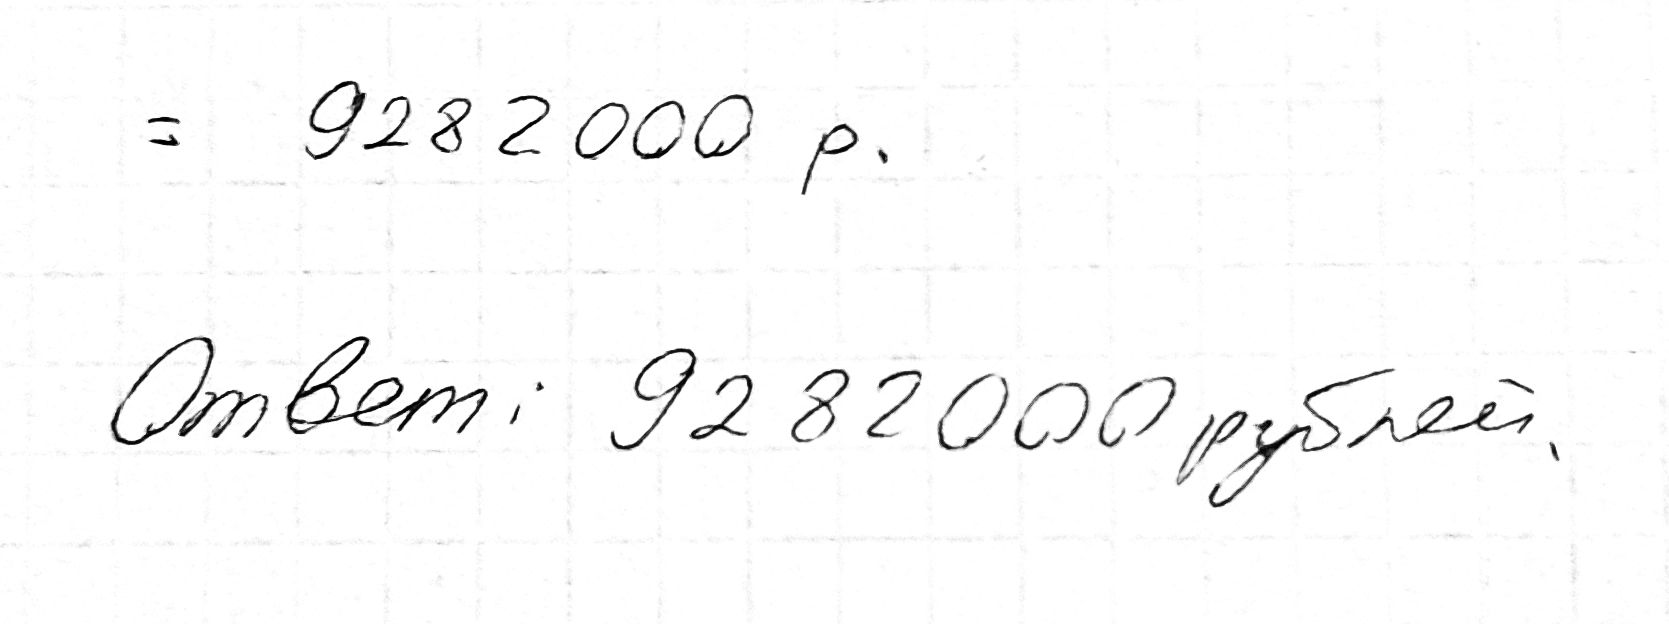 = 9282000 р.
Ответ: 9282000 рублей.